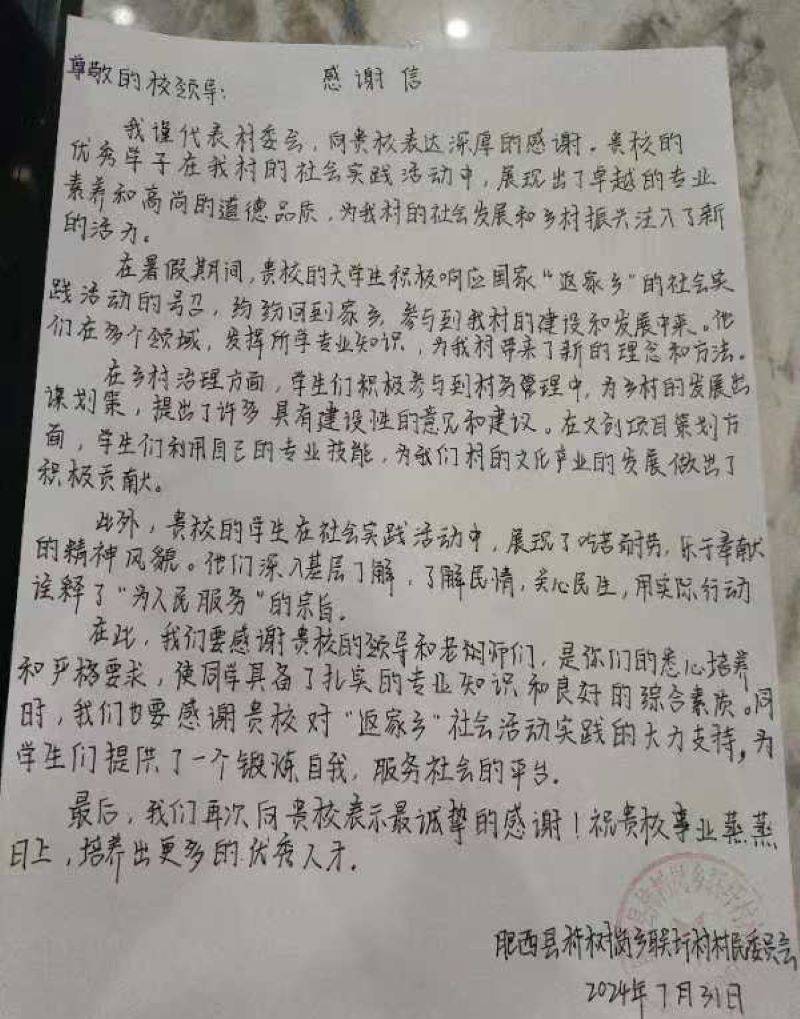 感谢信
尊敬的校领导:
我谨代表村委会,向贵校表达深厚的感谢。贵校的
优秀学子在我村的社会实践活动中,展现出了卓越的专业
素养和高尚的道德品质,为我村的社会发展和乡村振兴注入了新
的活力。
在暑假期间,贵校的大学生积极响应国家“返家乡”的社会实
践活动的号召,纷纷回到家乡,参与到我村的建设和发展中来。他
们在多个领域,发挥所学专业知识,为我村带来了新的理念和方法。
在乡村治理方面,学生们积极参与到村务管理中,为乡村的发展出
谋划策,提出了许多具有建设性的意见和建议。在文创项目策划方
面,学生们利用自己的专业技能,为我们村的文化产业的发展做出了
积极贡献。
此外,贵校的学生在社会实践活动中,展现了吃苦耐劳,乐于奉献
的精神风貌。他们深入基层了解,了解民情,关心民生,用实际行动
诠释了“为人民服务”的宗旨。
在此,我们要感谢贵校的领导和老师们,是你们的悉心培养
和严格要求,使同学具备了扎实的专业知识和良好的综合素质。同
时,我们也要感谢贵校对“返家乡”社会活动实践的大力支持,为
学生们提供了一个锻炼自我,服务社会的平台。
最后,我们再次向贵校表示最诚挚的感谢!祝贵校事业蒸蒸
日上,培养出更多的优秀人才.
肥西县柿树岗乡联圩村村民委员会
2024年7月31日